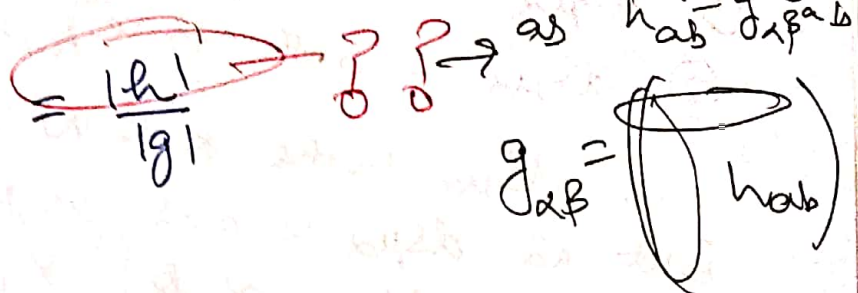 = |h| / |g| ?? → as h_ab = g_αβ
g_αβ = ( h_ab )